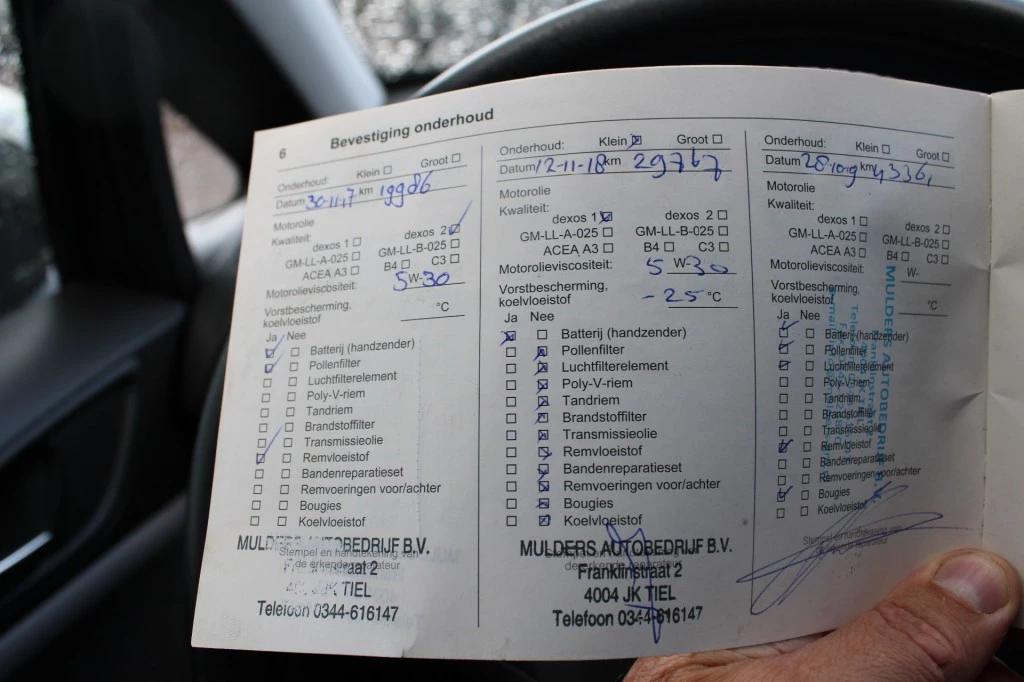 6 Bevestiging onderhoud
Onderhoud: Klein Groot
Datum 30-11-17 km 19986
Motorolie
Kwaliteit:
dexos 1 dexos 2
GM-LL-A-025 GM-LL-B-025
ACEA A3 B4 C3
Motorolieviscositeit: 5 W-30
Vorstbescherming,
koelvloeistof °C
Ja Nee
Batterij (handzender)
Pollenfilter
Luchtfilterelement
Poly-V-riem
Tandriem
Brandstoffilter
Transmissieolie
Remvloeistof
Bandenreparatieset
Remvoeringen voor/achter
Bougies
Koelvloeistof
Stempel en handtekening van
de erkende reparateur
MULDERS AUTOBEDRIJF B.V.
Franklinstraat 2
4004 JK TIEL
Telefoon 0344-616147
Onderhoud: Klein Groot
Datum 12-11-18 km 29767
Motorolie
Kwaliteit:
dexos 1 dexos 2
GM-LL-A-025 GM-LL-B-025
ACEA A3 B4 C3
Motorolieviscositeit: 5 W-30
Vorstbescherming,
koelvloeistof -25 °C
Ja Nee
Batterij (handzender)
Pollenfilter
Luchtfilterelement
Poly-V-riem
Tandriem
Brandstoffilter
Transmissieolie
Remvloeistof
Bandenreparatieset
Remvoeringen voor/achter
Bougies
Koelvloeistof
Stempel en handtekening van
de erkende reparateur
MULDERS AUTOBEDRIJF B.V.
Franklinstraat 2
4004 JK TIEL
Telefoon 0344-616147
Onderhoud: Klein Groot
Datum 28-10-19 km
Motorolie
Kwaliteit:
dexos 1 dexos 2
GM-LL-A-025 GM-LL-B-025
ACEA A3 B4 C3
Motorolieviscositeit: W-
Vorstbescherming,
koelvloeistof °C
Ja Nee
Batterij (handzender)
Pollenfilter
Luchtfilterelement
Poly-V-riem
Tandriem
Brandstoffilter
Transmissieolie
Remvloeistof
Bandenreparatieset
Remvoeringen voor/achter
Bougies
Koelvloeistof
Stempel en handtekening van
de erkende reparateur
MULDERS AUTOBEDRIJF B.V.